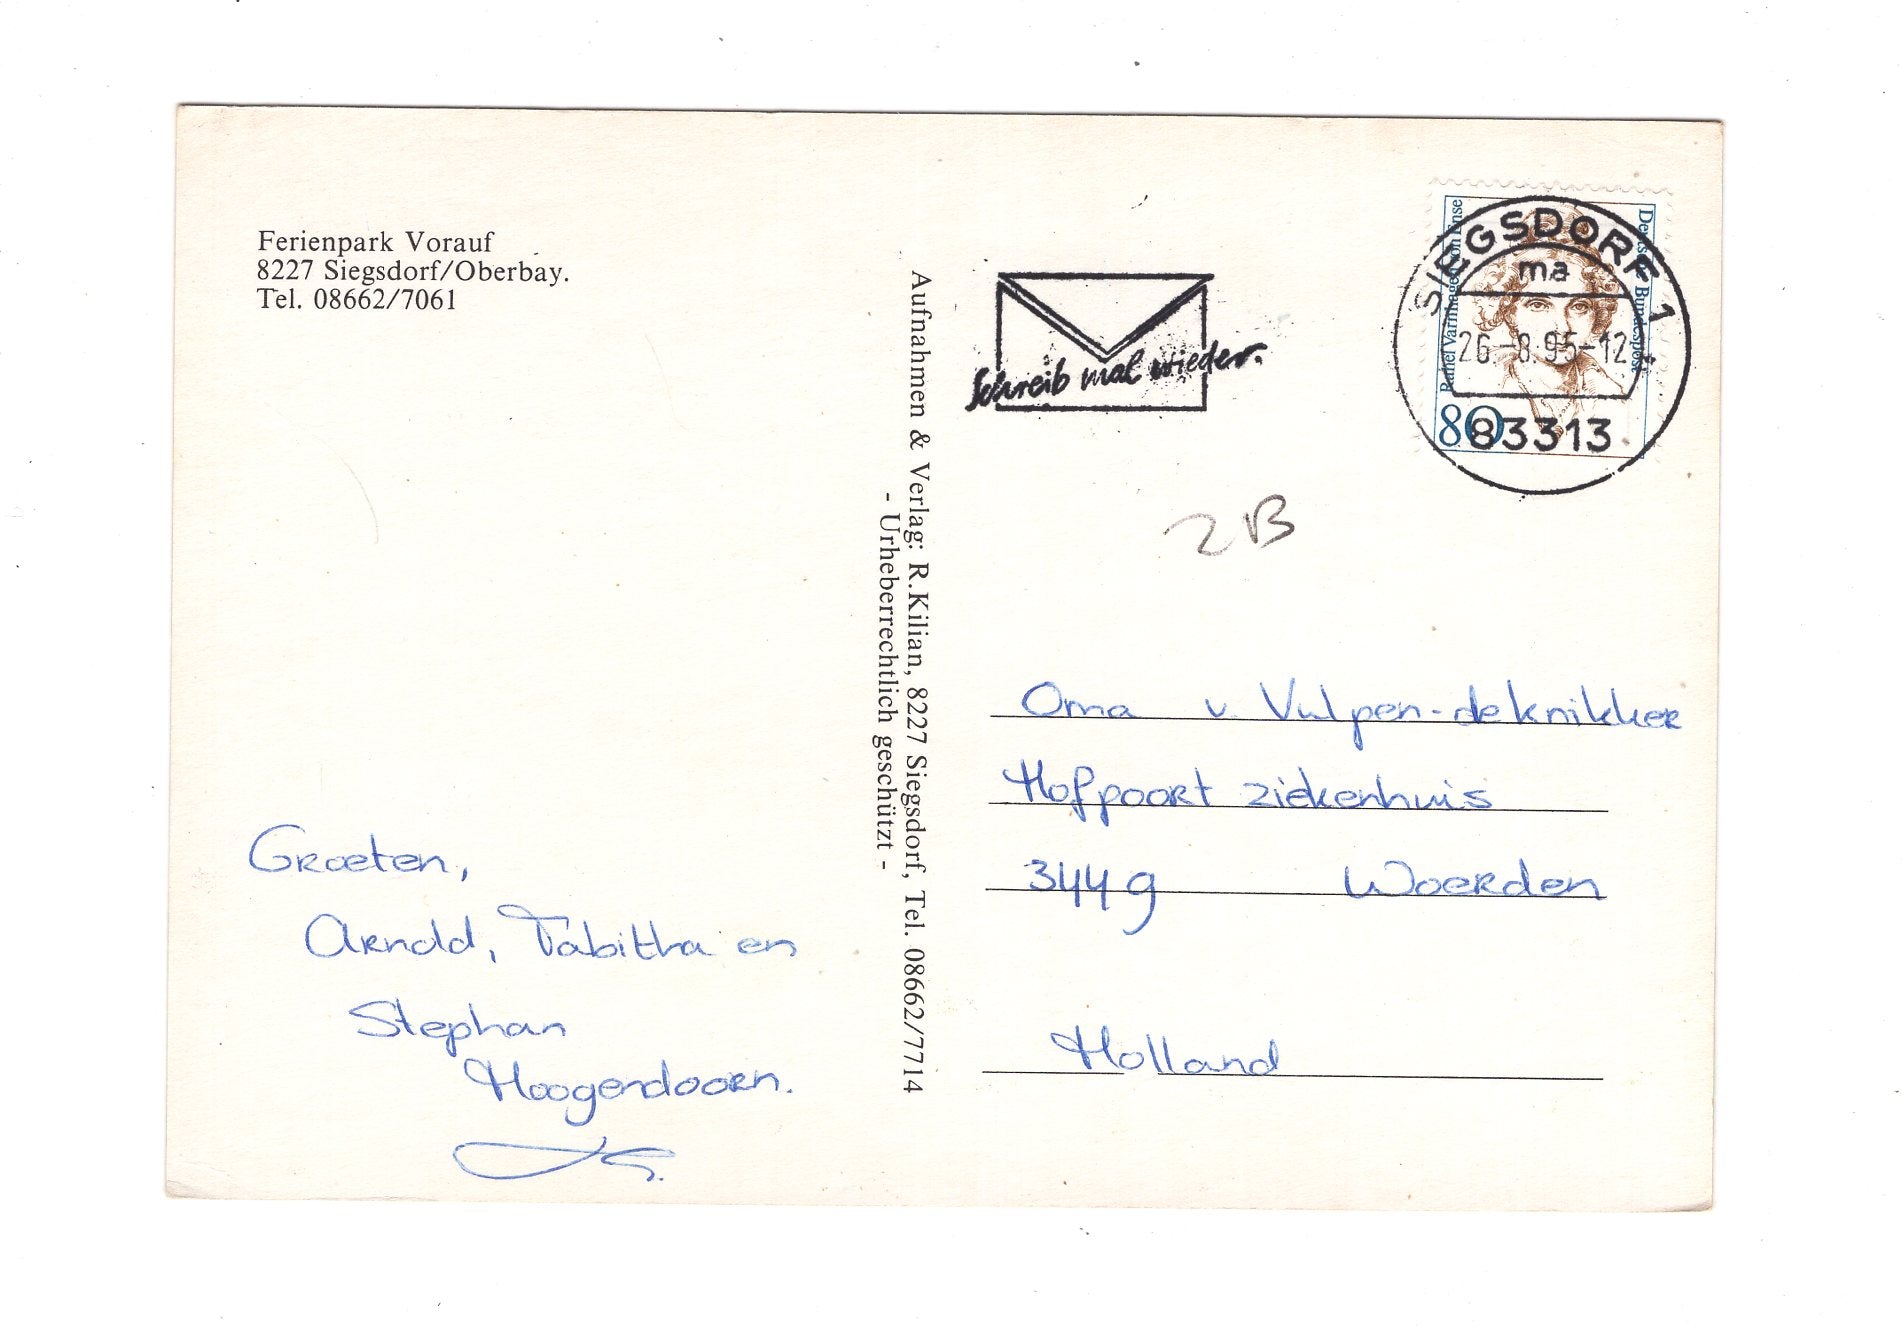 Ferienpark Vorauf
8227 Siegsdorf/Oberbay.
Tel. 08662/7061
Groeten,
Arnold, Tabitha en
Stephan
Hoogendoorn.
Aufnahmen & Verlag: R.Kilian, 8227 Siegsdorf, Tel. 08662/7714
- Urheberrechtlich geschützt -
Schreib mal wieder.
SIEGSDORF 1
ma
26.-8.95-12
83313
Rahel Varnhagen von Ense
Deutsche Bundespost
80
2B
Oma v. Vulpen-deknikker
Hofpoort ziekenhuis
3449 Woerden
Holland